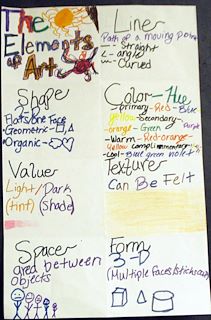 The
Elements
of
Art
Line
Path of a moving point
- Straight
- angle
- Curved
Shape
Flats/one Face
Geometric-
Organic-
Color-Hue
-primary-Red-Blue
yellow-Secondary-
orange-Green
purple
-Warm-Red-orange-
yellow complimentary
-cool-Blue green violet
Value
Light/Dark
(tint) (Shade)
Texture
Can Be Felt
Space
area between
objects
Form
3-D
(Multiple Faces/